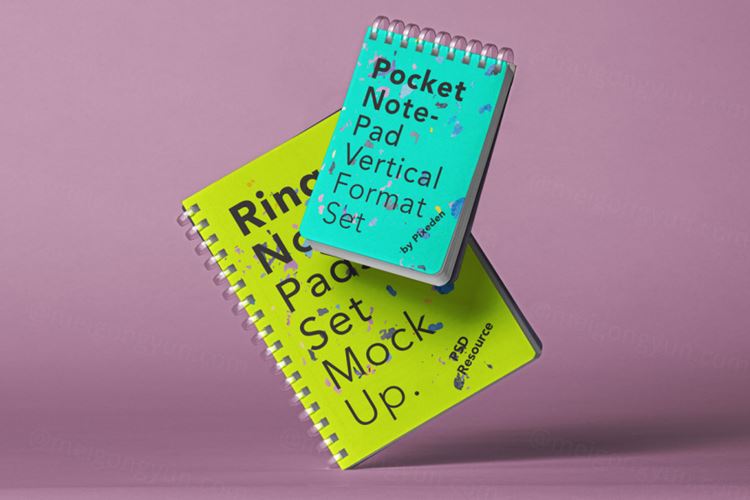 Pocket
Note-
Pad
Vertical
Format
Set
by Pixeden
Ring
No
Pad-
Set
Mock
Up.
PSD
Resource